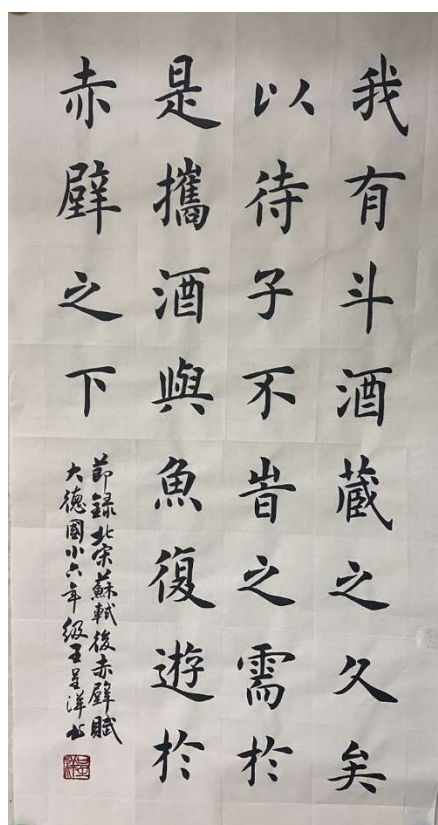 我有斗酒藏之久矣
以待子不旹之需於
是攜酒與魚復遊於
赤壁之下
節錄北宋蘇軾後赤壁賦
大德國小六年級王洋书